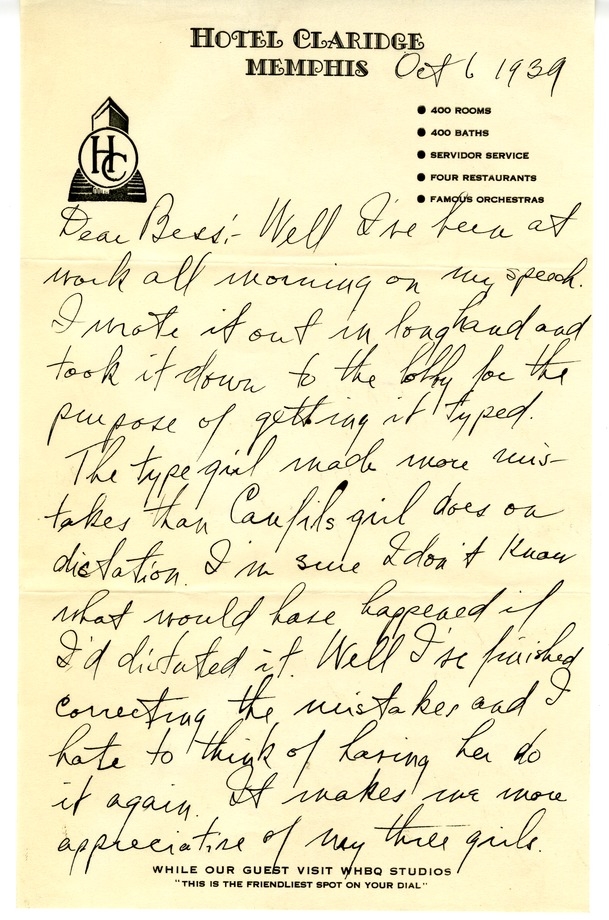 HOTEL CLARIDGE
MEMPHIS
Oct 6 1939
● 400 ROOMS
● 400 BATHS
● SERVIDOR SERVICE
● FOUR RESTAURANTS
● FAMOUS ORCHESTRAS
HC
Dear Bess:- Well I've been at
work all morning on my speech.
I wrote it out in longhand and
took it down to the lobby for the
purpose of getting it typed.
The type girl made more mis-
takes than Canfils girl does on
dictation. I'm sure I don't know
what would have happened if
I'd dictated it. Well I've finished
correcting the mistakes and I
hate to think of having her do
it again. It makes me more
appreciative of my three girls.
WHILE OUR GUEST VISIT WHBQ STUDIOS
"THIS IS THE FRIENDLIEST SPOT ON YOUR DIAL"